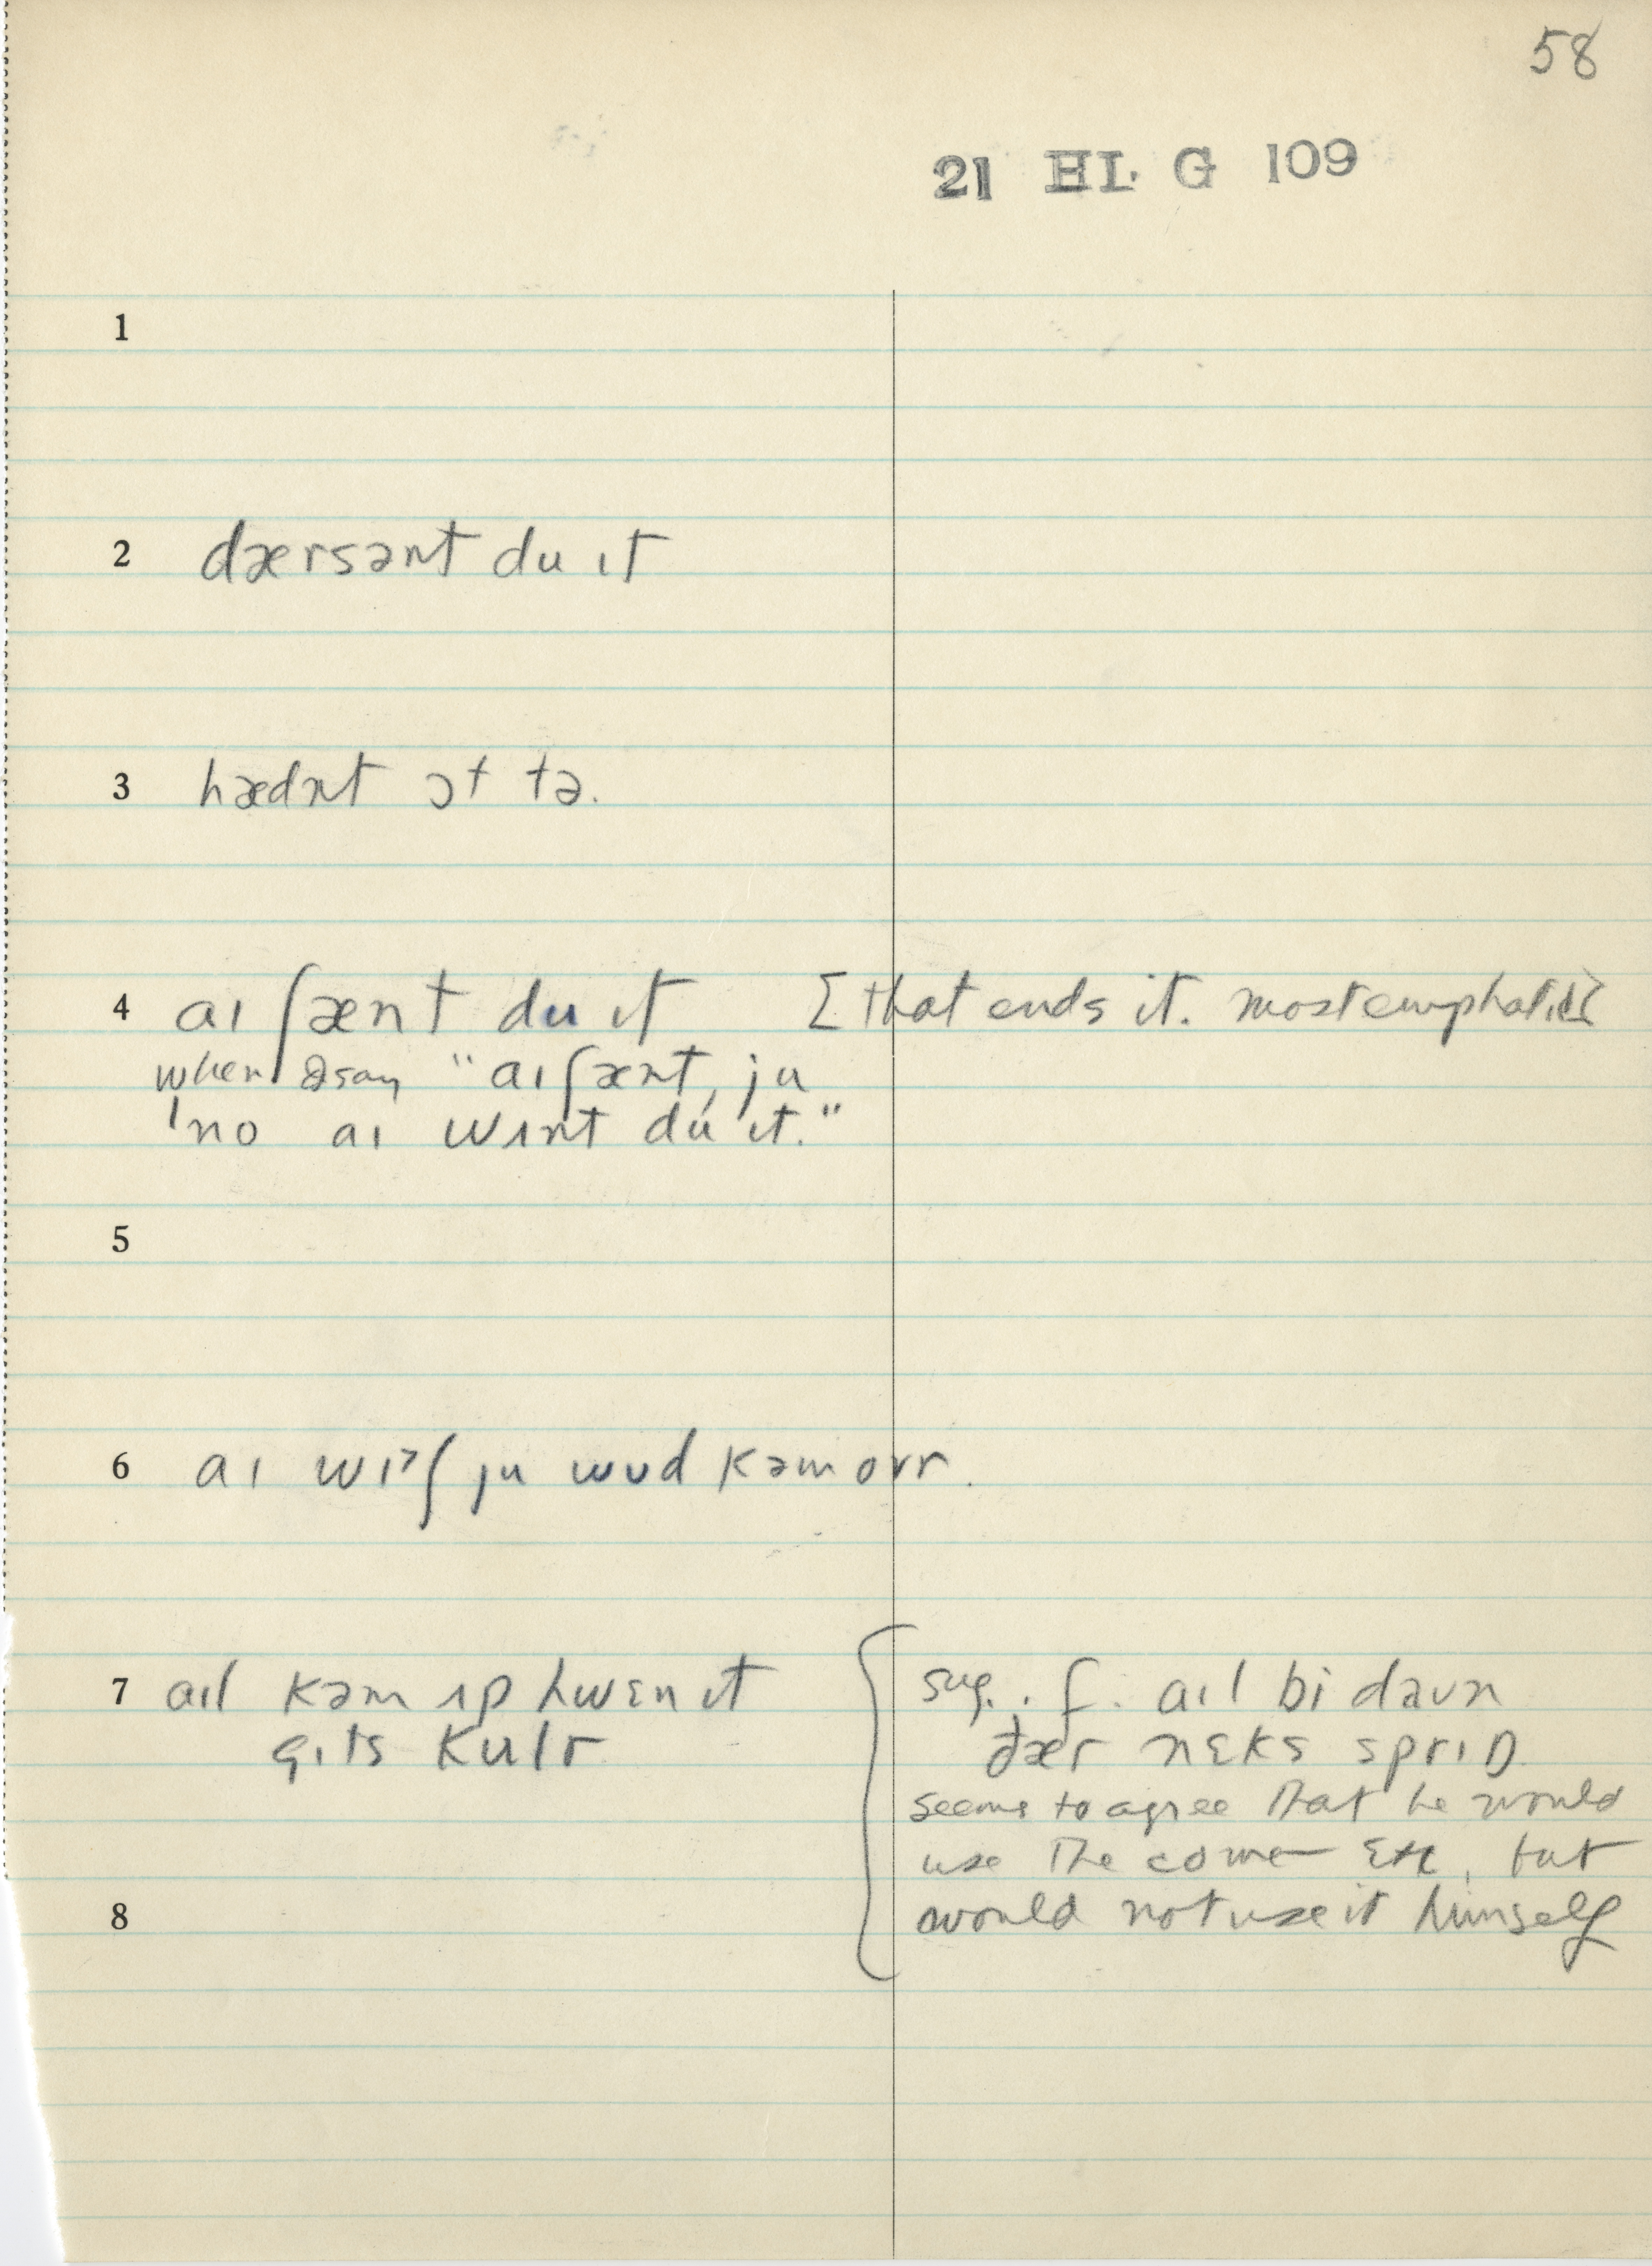 58
21 HL G 109
1
2 dærsənt du ɪt
3 hædnt ɔt tə.
4 aɪ ʃænt du ɪt [that ends it. most emphatic]
when I say "aɪ ʃænt, ju
'no aɪ wʌnt du ɪt."
5
6 aɪ wɪˀʃ ju wʊd kəm ovr.
7 aɪl kəm ʌp hwɛn ɪt
gɪts kulr
sug. : f. aɪl bi daʊn
ðær nɛks sprɪŋ
seems to agree that he would
use the come etc, but
8
would not use it himself